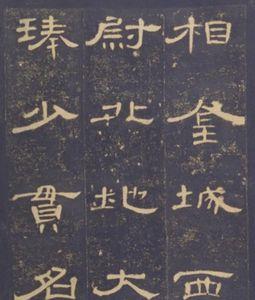 相金城西
尉北地大
琫少貫名